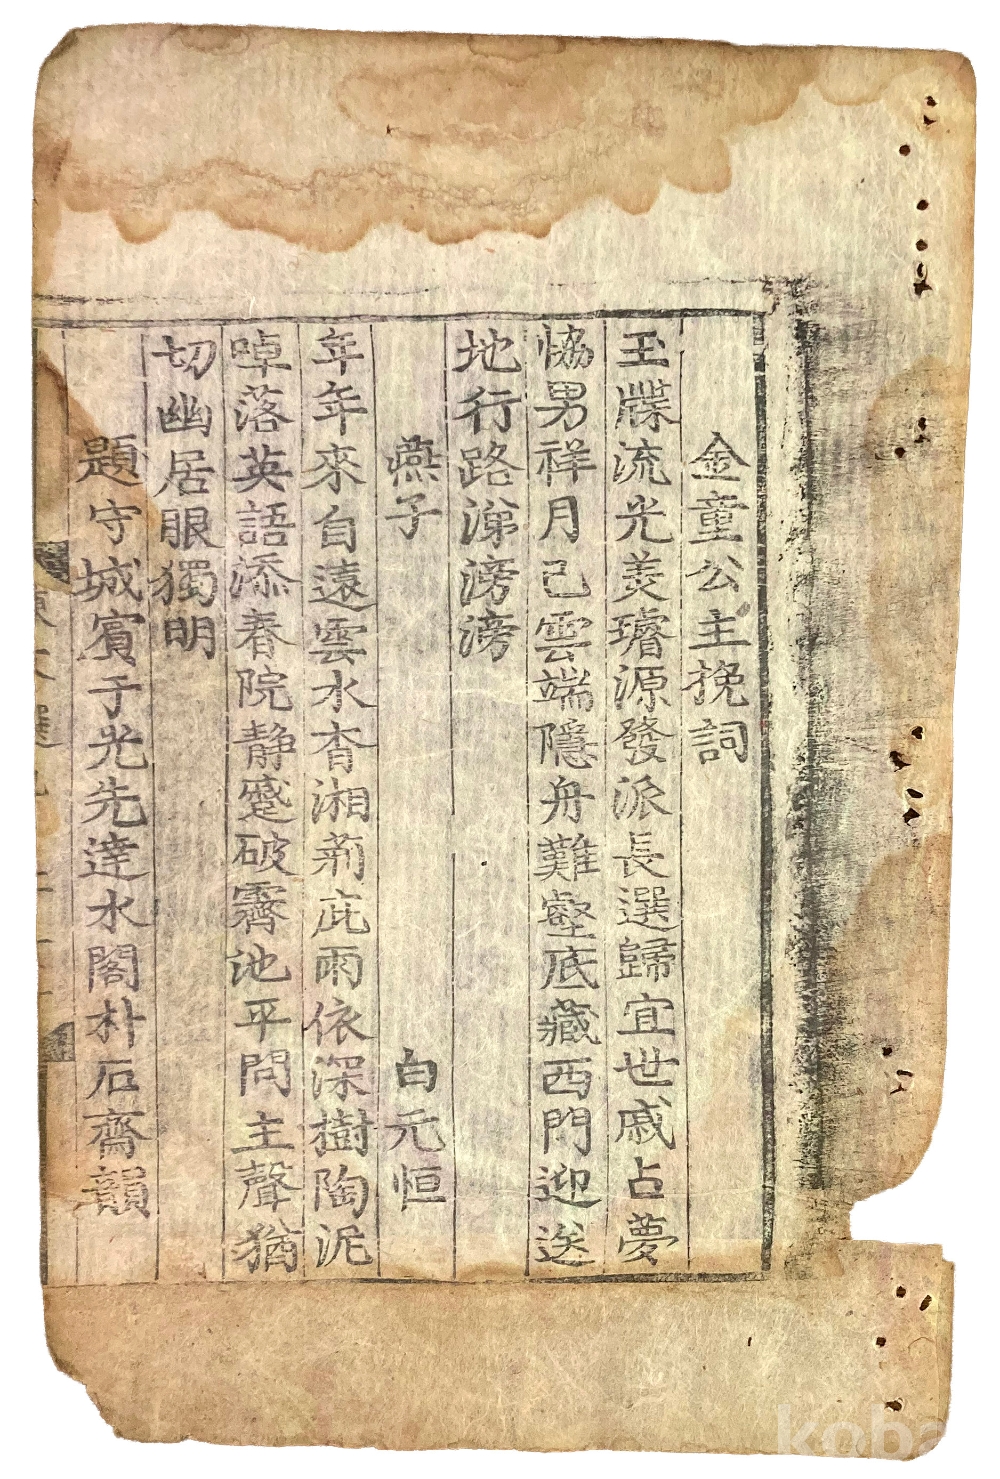 金童公主挽詞
玉牒流光羙璿源發派長選歸宜世戚占夢
恊男祥月已雲端隱舟難壑底藏西門迎送
地行路涕滂滂
燕子 白元恒
年年來自遠雲水杳湘荊庇雨依深樹陶泥
啅落英語添春院静蹙破霽池平問主聲猶
切幽居眼獨明
題守城賓于光先達水閣朴石齋韻
koba